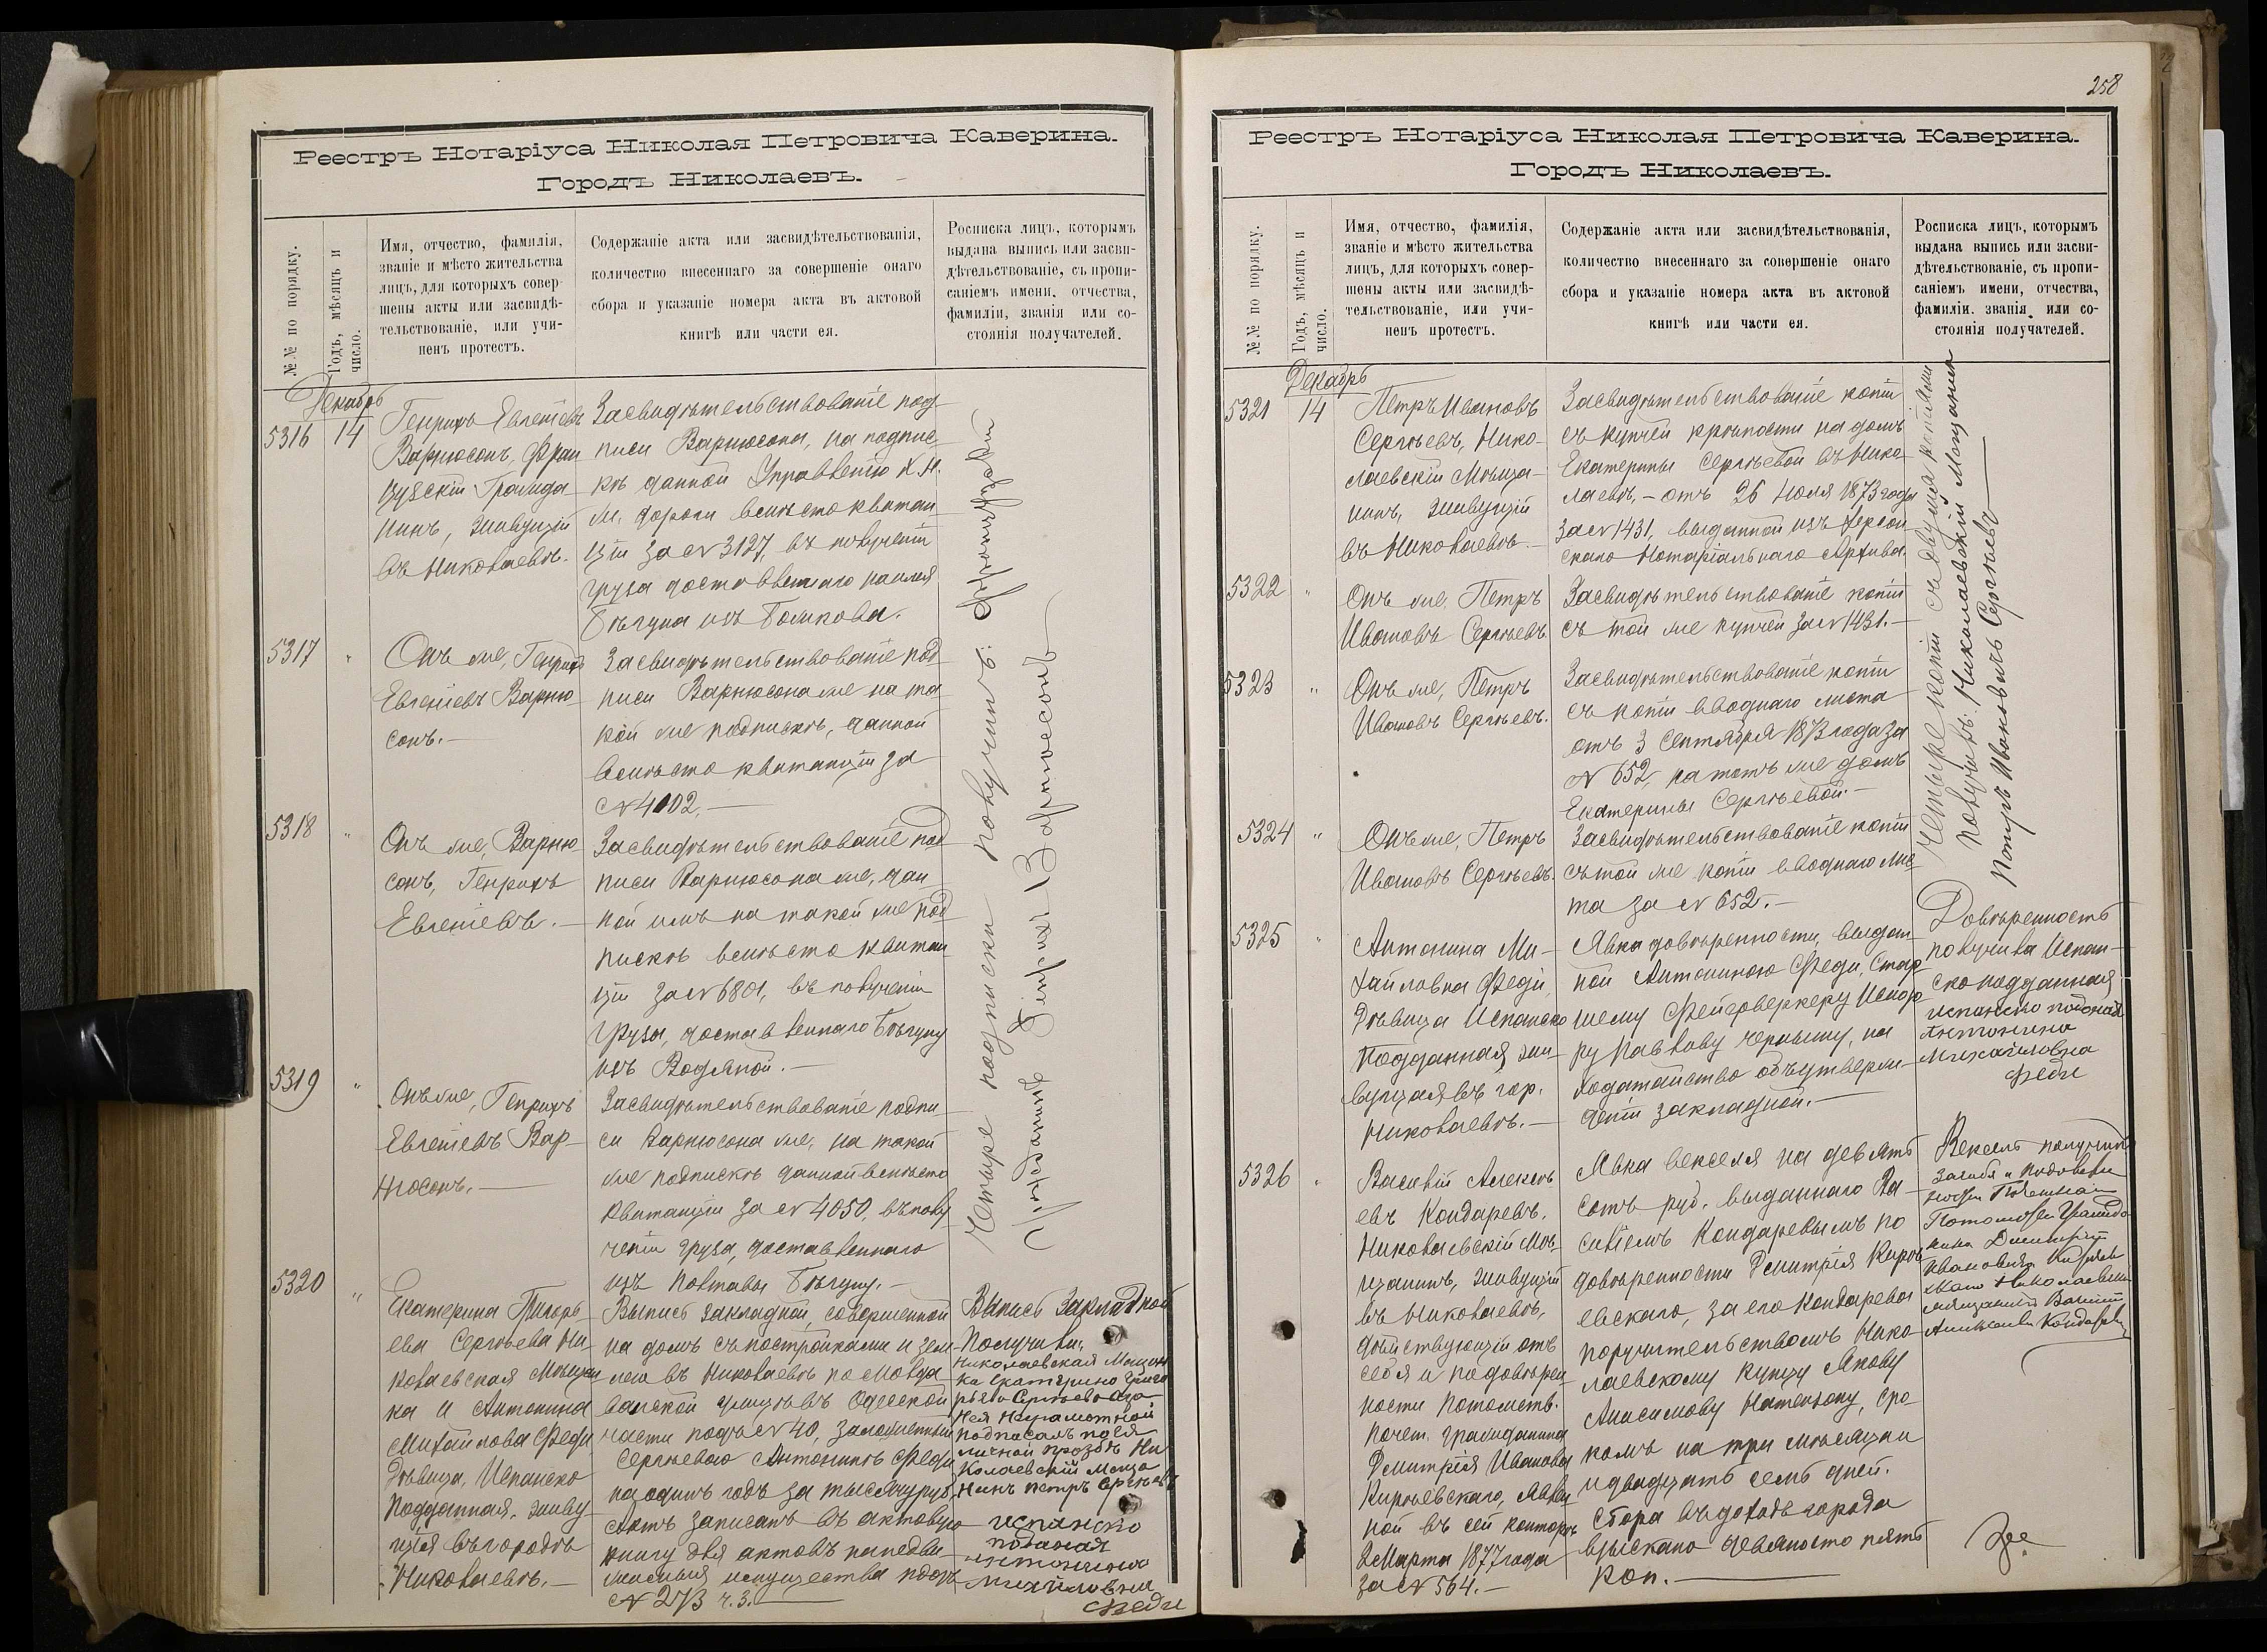 Реестръ Нотаріуса Николая Петровича Каверина.
Городъ Николаевъ.
№№ по порядку.
Годъ, мѣсяцъ и
число.
Имя, отчество, фамилія,
званіе и мѣсто жительства
лицъ, для которыхъ совер-
шены акты или засвидѣ-
тельствованіе, или учи-
ненъ протестъ.
Содержаніе акта или засвидѣтельствованія,
количество внесеннаго за совершеніе онаго
сбора и указаніе номера акта въ актовой
книгѣ или части ея.
Росписка лицъ, которымъ
выдана выпись или засви-
дѣтельствованіе, съ пропи-
саніемъ имени, отчества,
фамиліи, званія или со-
стоянія получателей.
Декабрь
5316
14
Генрихъ Евгеніевъ
Варнюсонъ, Фран
цузскій Гражда
нинъ, живущій
въ Николаевѣ.
Засвидѣтельствованіе под
писи Варнюсона, на подпис
кѣ данной Управленію Х. Н.
ж. дороги вмѣсто квитан
ціи за № 3127, въ полученіи
груза доставленнаго
Бѣгуна изъ
5317
"
Онъ же, Генрихъ
Евгеніевъ Варню
сонъ.—
Засвидѣтельствованіе под
писи Варнюсона же на та
кой же подпискѣ, данной
вмѣсто квитанціи за
№ 4102.—
5318
"
Онъ же, Варню
сонъ, Генрихъ
Евгеніевъ.—
Засвидѣтельствованіе под
писи Варнюсона же, дан
ной имъ на такой же под
пискѣ вмѣсто квитан
ціи за № 6801, въ полученіи
груза, доставленнаго Бѣгуну
изъ Водяной.—
5319
"
Онъ же, Генрихъ
Евгеніевъ Вар-
нюсонъ.—
Засвидѣтельствованіе подпи
си Варнюсона же, на такой
же подпискѣ данной вмѣсто
квитанціи за № 4050, въ полу
ченіи груза, доставленнаго
изъ Полтавы Бѣгуну.—
Четыре подписки получилъ: Французскій
Гражданинъ Генрихъ Варнюсонъ
5320
"
Екатерина Григорь
ева Сергѣева Ни
колаевская Мѣщан
ка и Антонина
Михайлова Феди
Дѣвица, Испанско
подданная, живу
щія въ городѣ
Николаевѣ.—
Выпись закладной, совершенной
на домъ съ постройками и зем-
лею въ Николаевѣ по Молда
ванской улицѣ въ Одесской
части подъ № 40, заложенный
Сергѣевою Антонинѣ Феди
на одинъ годъ за тысячу руб.
Актъ записанъ въ актовую
книгу для актовъ на недви-
жимыя имущества подъ
№ 273 ч. 3.
Выпись Закладной
Получили,
Николаевская Мещан
ка Екатерина Григо
рьева Сергѣева а за
Нея Неграмотной
подписалъ по ея
личной прозбѣ Ни
Колаевскій Меща
Нинъ Петръ Сергѣевъ
испанско
поданая
антонина
михайловна
Феди
258
Реестръ Нотаріуса Николая Петровича Каверина.
Городъ Николаевъ.
№№ по порядку.
Годъ, мѣсяцъ и
число.
Имя, отчество, фамилія,
званіе и мѣсто жительства
лицъ, для которыхъ совер-
шены акты или засвидѣ-
тельствованіе, или учи-
ненъ протестъ.
Содержаніе акта или засвидѣтельствованія,
количество внесеннаго за совершеніе онаго
сбора и указаніе номера акта въ актовой
книгѣ или части ея.
Росписка лицъ, которымъ
выдана выпись или засви-
дѣтельствованіе, съ пропи-
саніемъ имени, отчества,
фамиліи, званія, или со-
стоянія получателей.
Декабрь
5321
14
Петръ Ивановъ
Сергѣевъ, Нико-
лаевскій Мѣща-
нинъ, живущій
въ Николаевѣ.—
Засвидѣтельствованіе копіи
съ купчей крѣпости на домъ
Екатерины Сергѣевой въ Нико
лаевѣ,— отъ 26 Юля 1873 года
за № 1431, выданной изъ Херсон
скаго Нотаріальнаго Архива.
5322
"
Онъ же, Петръ
Ивановъ Сергѣевъ.
Засвидѣтельствованіе копіи
съ той же купчей за № 1431.—
5323
"
Онъ же, Петръ
Ивановъ Сергѣевъ.
Засвидѣтельствованіе копіи
съ копіи вводнаго листа
отъ 3 Сентября 1873 года за
№ 652, на тотъ же домъ
Екатерины Сергѣевой.—
5324
"
Онъ же, Петръ
Ивановъ Сергѣевъ.
Засвидѣтельствованіе копіи
съ той же копіи вводнаго лис
та за № 652.—
Четыре копіи съ двумя копіями
Получилъ: Николаевскій Мещанинъ
Петръ Ивановъ Сергѣевъ
5325
"
Антонина Ми-
хайловна Феди,
Дѣвица Испанско
подданная жи-
вущая въ гор.
Николаевѣ.—
Явка довѣренности, выдан-
ной Антониною Феди, Стар
шему Фейерверкеру Исидо
ру Павлову Чернышу, на
ходатайство объ утверж-
деніи закладной.—
Довѣренность
получила Испан-
ско подданная
испанско поданая
Антонина
Михайловна
Феди
5326
"
Василій Алексѣ
евъ Кондаревъ,
Николаевскій Мѣ-
щанинъ, живущій
въ Николаевѣ,
дѣйствующій отъ
себя и по довѣрен
ности Потомств.
Почет. гражданина
Дмитрія Иванова
Кирьевскаго, явлен
ной въ сей конторѣ
2 Марта 1877 года
за № 564.—
Явка векселя на девять
сотъ руб. выданнаго Ва-
силіемъ Кондаревымъ по
довѣренности Дмитрія Кирѣ
евскаго, за его Кондарева
поручительствомъ Нико-
лаевскому Купцу Якову
Анисимову Натензону, сро
комъ на три мѣсяца
и двадцать семь дней.
Сбора въ доходъ города
взыскано девяносто пять
коп.—
Вексель получилъ
За себя и
Гражда
нина Дмитрія
Ивановича
Николаевскій
мѣщанинъ Василій
Алексѣевъ Кондаревъ